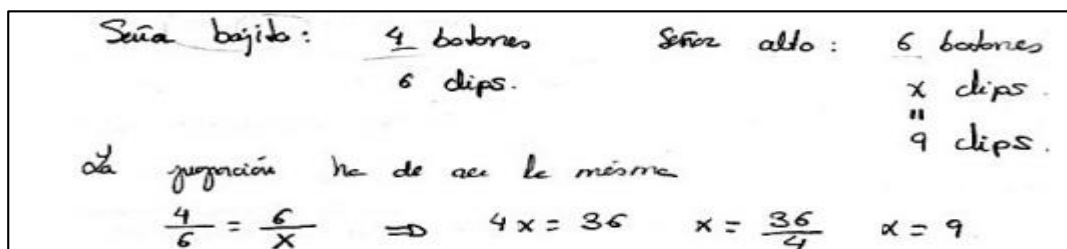 Señor bajito: 4 botones Señor alto: 6 botones
6 clips. x clips.
"
9 clips.
La proporción ha de ser la misma
4/6 = 6/x ⇒ 4x = 36 x = 36/4 x = 9